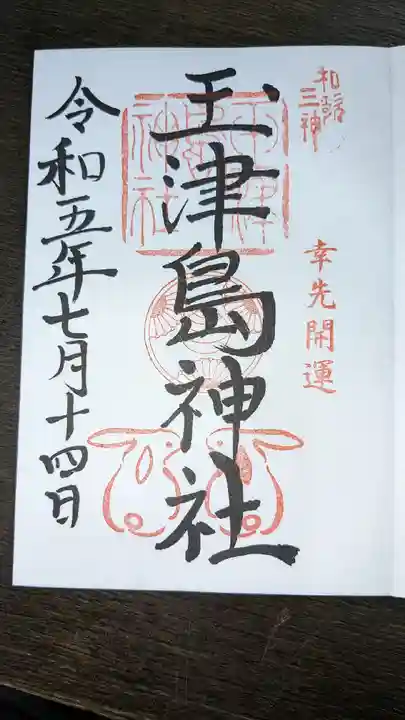 和歌
三神
幸先開運
玉津島神社
令和五年七月十四日